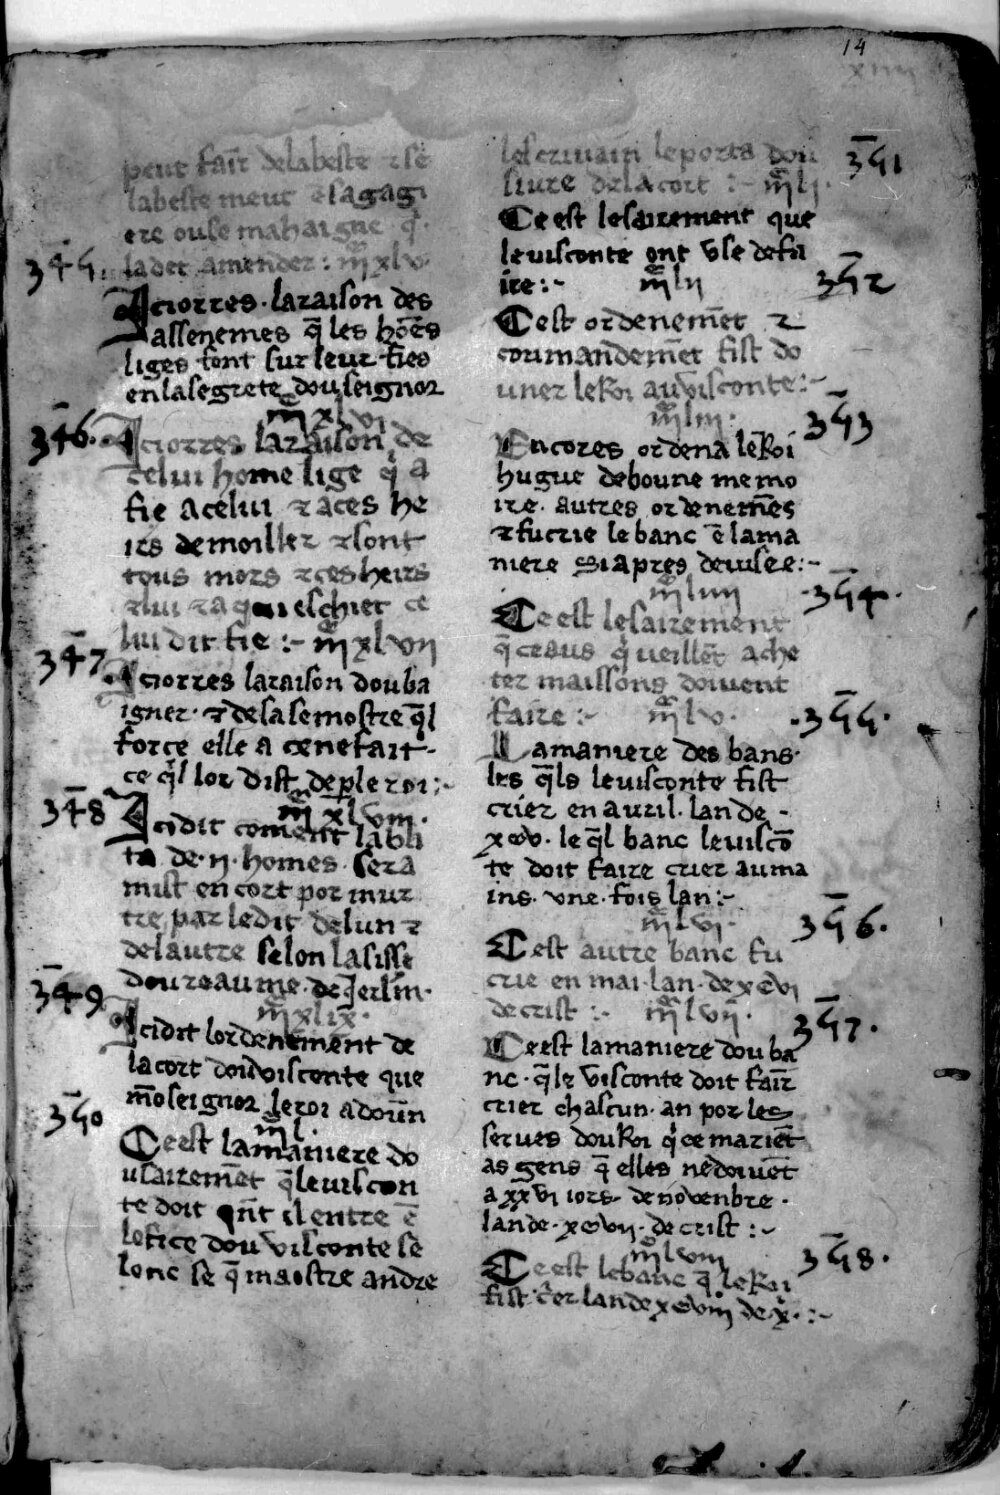 14
xiiii
peut fair̄ de la beste ⁊ se
la beste meurt ē sa gagi
ere ou se mahaigne q̇
la det amender : iij͞c xlv
345
Iciorres · la raison des
assenemes q̄ les hōēs
liges font sur leur fies
en la segrete dou seignor
iij͞c xlvi
346.
Iciorres la raison de
celui home lige q̇ a
fie a celui ⁊ a ces he
irs de moiller ⁊ sont
tous mors ⁊ ces heirs
⁊ lui ⁊ a qui eschiet ce
lui dit fie :~ iij͞c xlvii
347
Iciorres la raison dou ba
igner · ⁊ de sa semostre q̄l
force elle a ce ne fait ·
ce q̇l lor dist de ꝑ le roi :~
iij͞c xlviii ·
348
Icidit coment labli
ta de · ii · homes · sera
mist en cort por mur
tre par le dit de lun ⁊
de lautre selon lasisse
dou reaume · de Jerl̄m ·
iij͞c xlix ·
349
Icidit lordenēment de
la cort dou visconte que
mōseignor le roi a doūn
iij͞c l ·
350
Ce est la maniere do
u sairemēt q̄ le viscon
te doit qn̄t il entre ē
lofice dou visconte se
lonc se q̄ maistre andre
lescrivain le porta dou
livre de la cort :~ iij͞c li ·
351
Ce est le sairement que
le visconte ont vse de fa
ire :~ iij͞c lii
352
Cest ordenemēt ⁊
coumandemēt fist do
uner le Roi au visconte :~
iij͞c liii ·
353
Encores ordena le Roi
hugue de boune memo
ire · autres ordenemēs
⁊ fu crie le banc ē la ma
niere si apres devisee :~
iij͞c liiii
354.
Ce est le sairement
q̄ ceaus q̇ veillēt ache
ter maissons doivent
faire :~ iij͞c lv ·
355.
La maniere des bans ·
les q̄ls le visconte fist
crier en avril · lan de ·
xcv · le q̄l banc le viscō
te doit faire crier au ma
ins · vne · fois lan :~
iij͞c lvi ·
356.
Cest autre banc fu
crie en mai · lan · de xcvi
de crist :~ iij͞c lvii ·
357.
Ce est la maniere dou ba
nc · q̄ le visconte doit fair̄
crier chascun · an por les
serves dou Roi q̇ ce mariēt
as gens q̄ elles ne doivēt
a xxvi iors · de novenbre ·
lan de · xcvii · de crist :~
iij͞c lviii
358.
Ce est le banc q̄ le Roi
fist c̄er lan de xcviii de x̄ · :~